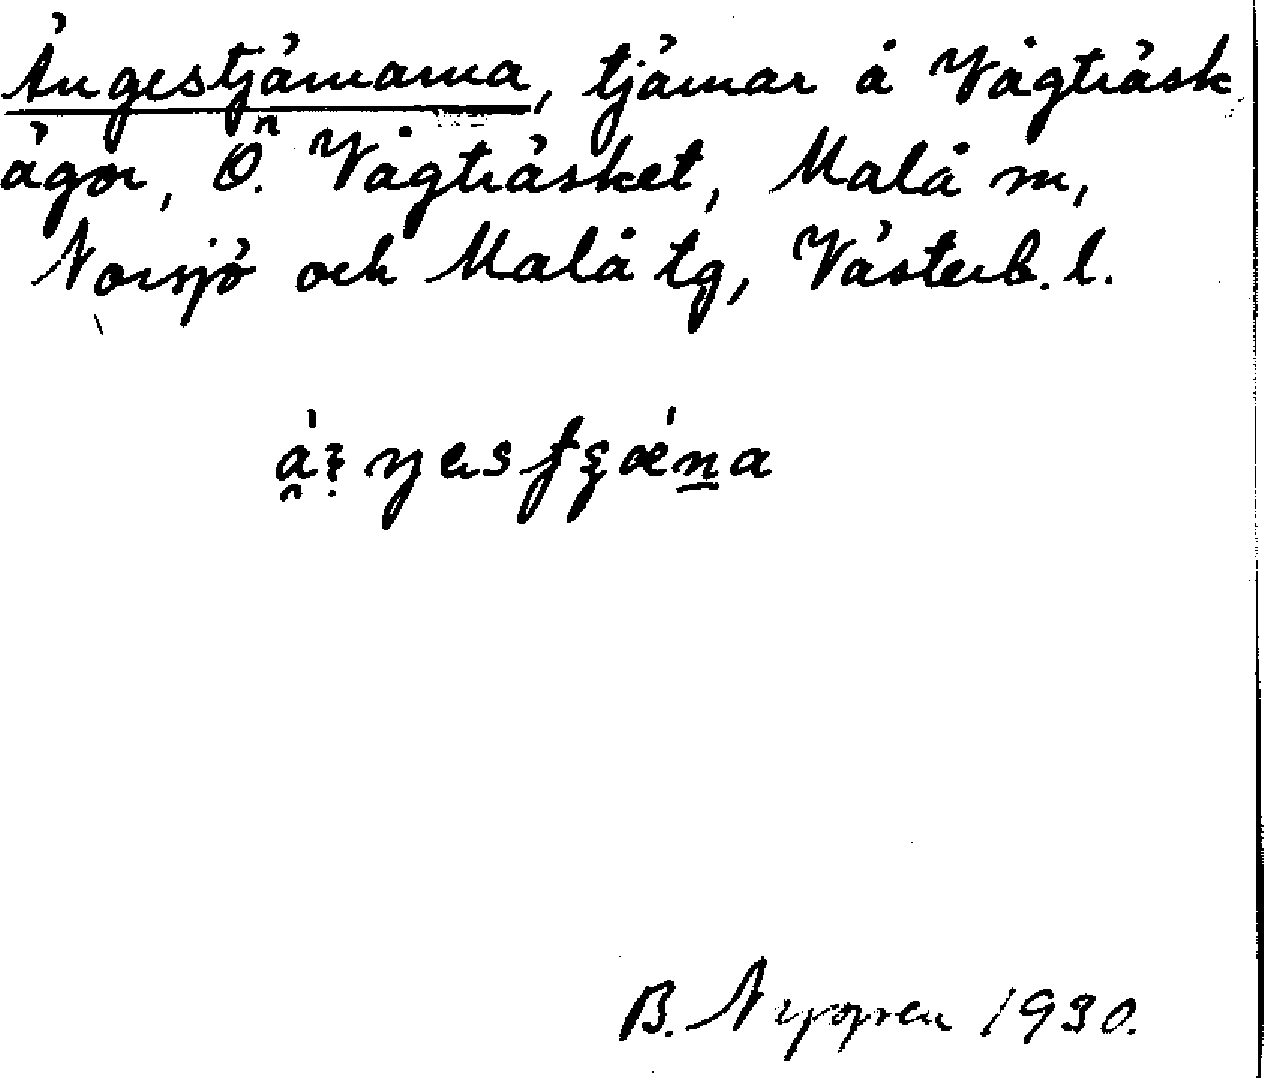 Ängestjärnarna, tjärnar å Vågträsk
ägor, Ö. Vågträsket, Malå sn,
Norsjö och Malå tg, Västerb. l.
B. Nygren 1930.